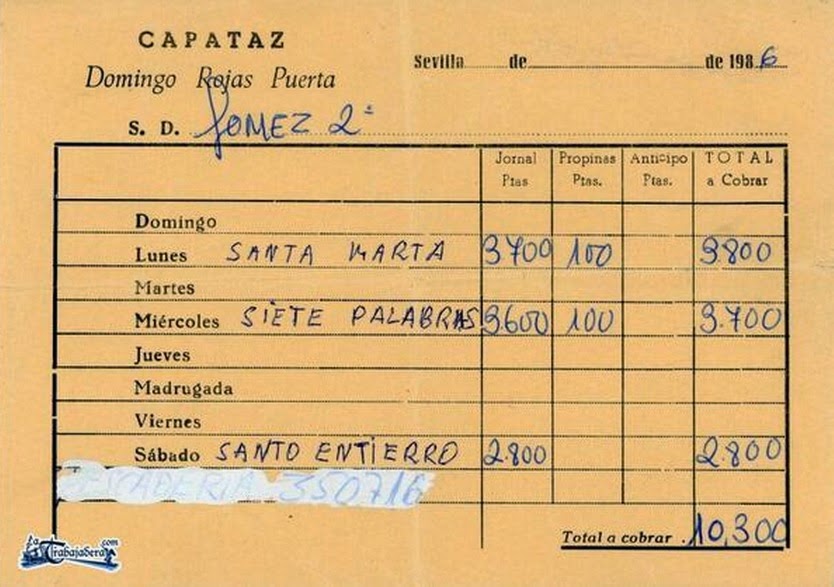 CAPATAZ
Domingo Rojas Puerta
Sevilla de de 1986
S. D. GOMEZ 2ª
Jornal Ptas Propinas Ptas. Anticipo Ptas. TOTAL a Cobrar
Domingo
Lunes SANTA MARTA 3.700 100 3.800
Martes
Miércoles SIETE PALABRAS 3.600 100 3.700
Jueves
Madrugada
Viernes
Sábado SANTO ENTIERRO 2.800 2.800
350716
Total a cobrar 10,300
La Trabajadera.com